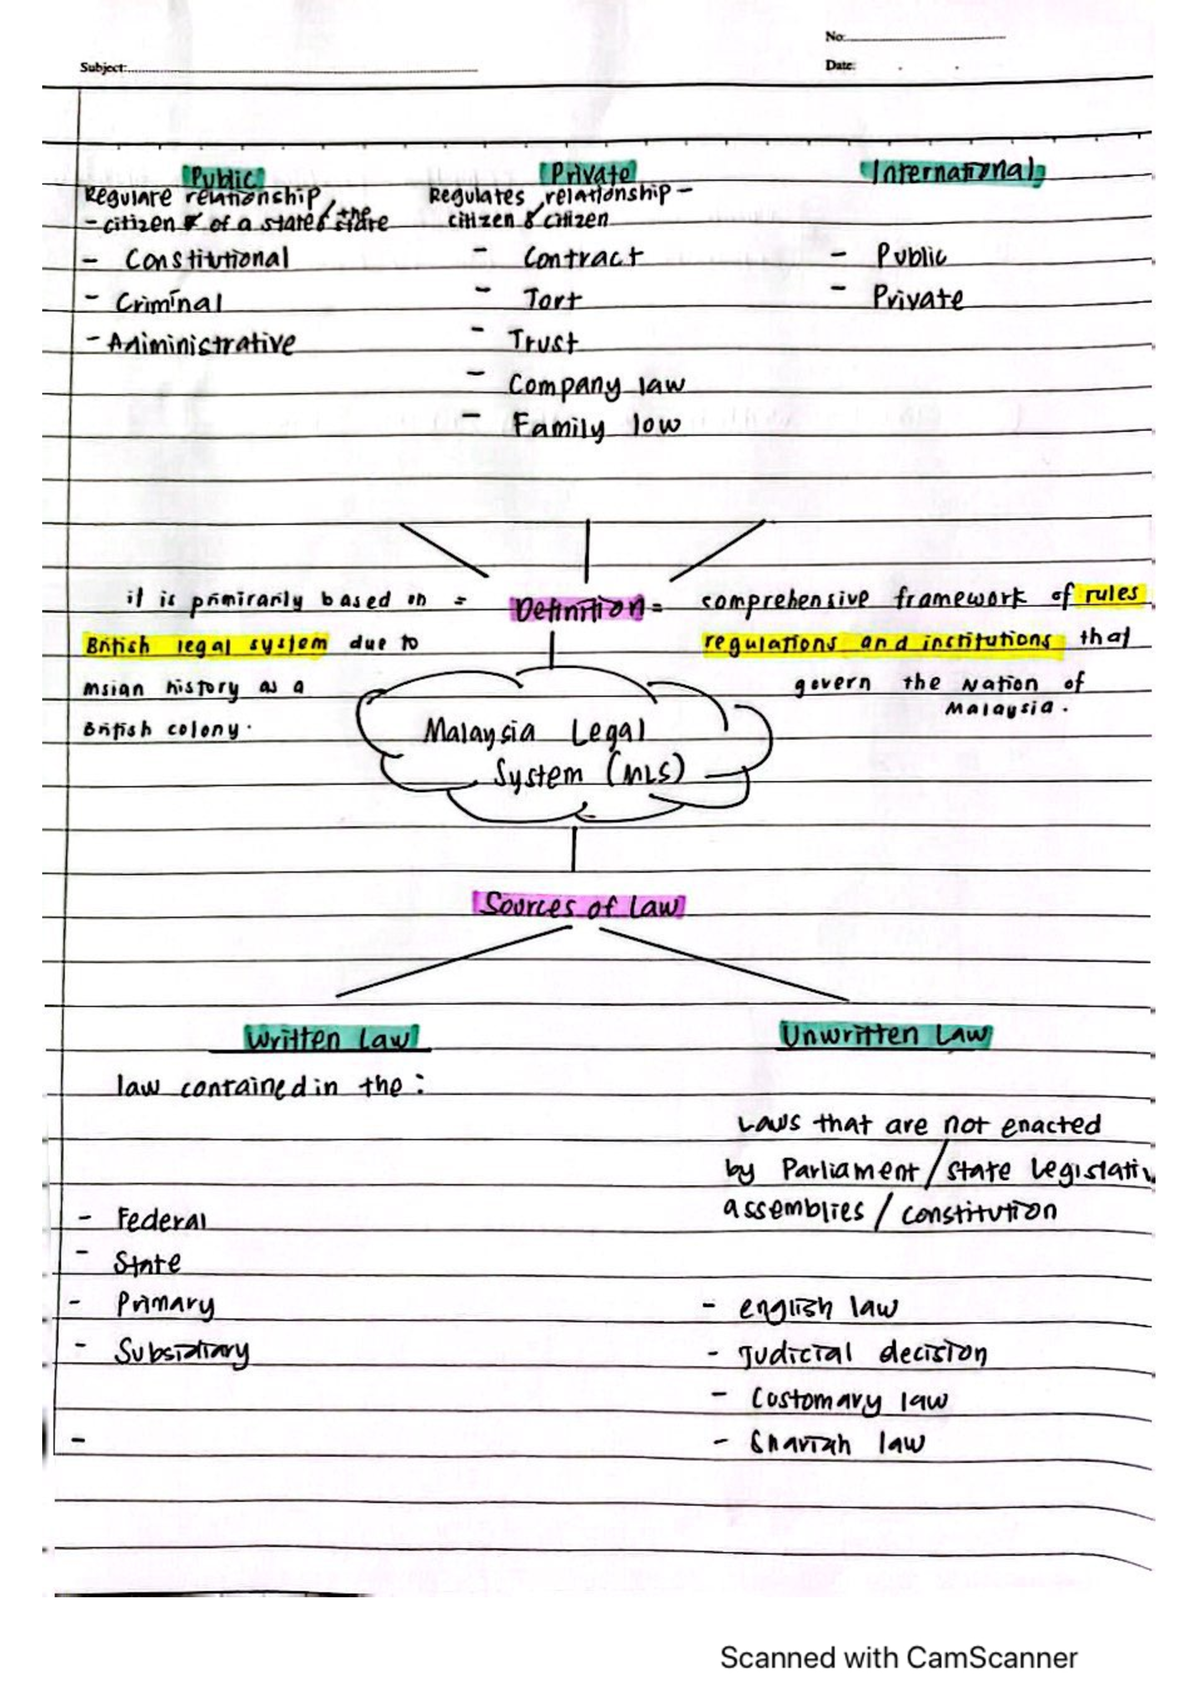 No:
Subject:
Date:
Public Private International
Regulare relationship Regulates relationship -
- citizen & of a state & the state citizen & citizen
- Constitutional - Contract - Public
- Criminal - Tort - Private
- Adiministrative - Trust
- Company law
- Family law
it is primirarily based on = Definition = comprehensive framework of rules
British legal system due to regulations and institutions that
msian history as a govern the Nation of
British colony. Malaysia.
Malaysia Legal
System (MLS)
Sources of Law
Written Law Unwritten Law
law contained in the :
Laws that are not enacted
by Parliament / state Legislativ
assemblies / constitution
- Federal
- State
- Primary - english law
- Subsidiary - Judicial decision
- Customary law
- - Shariah law
Scanned with CamScanner